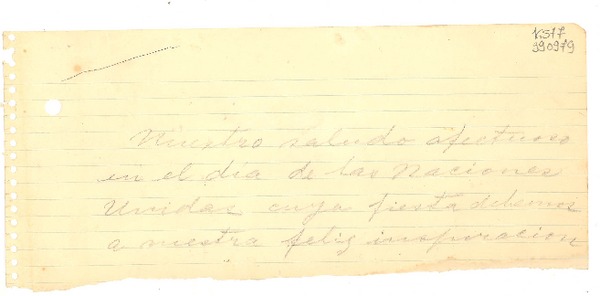 KS17
990979
Nuestro saludo afectuoso
en el día de las Naciones
Unidas cuya fiesta debemos
a nuestra feliz inspiracion